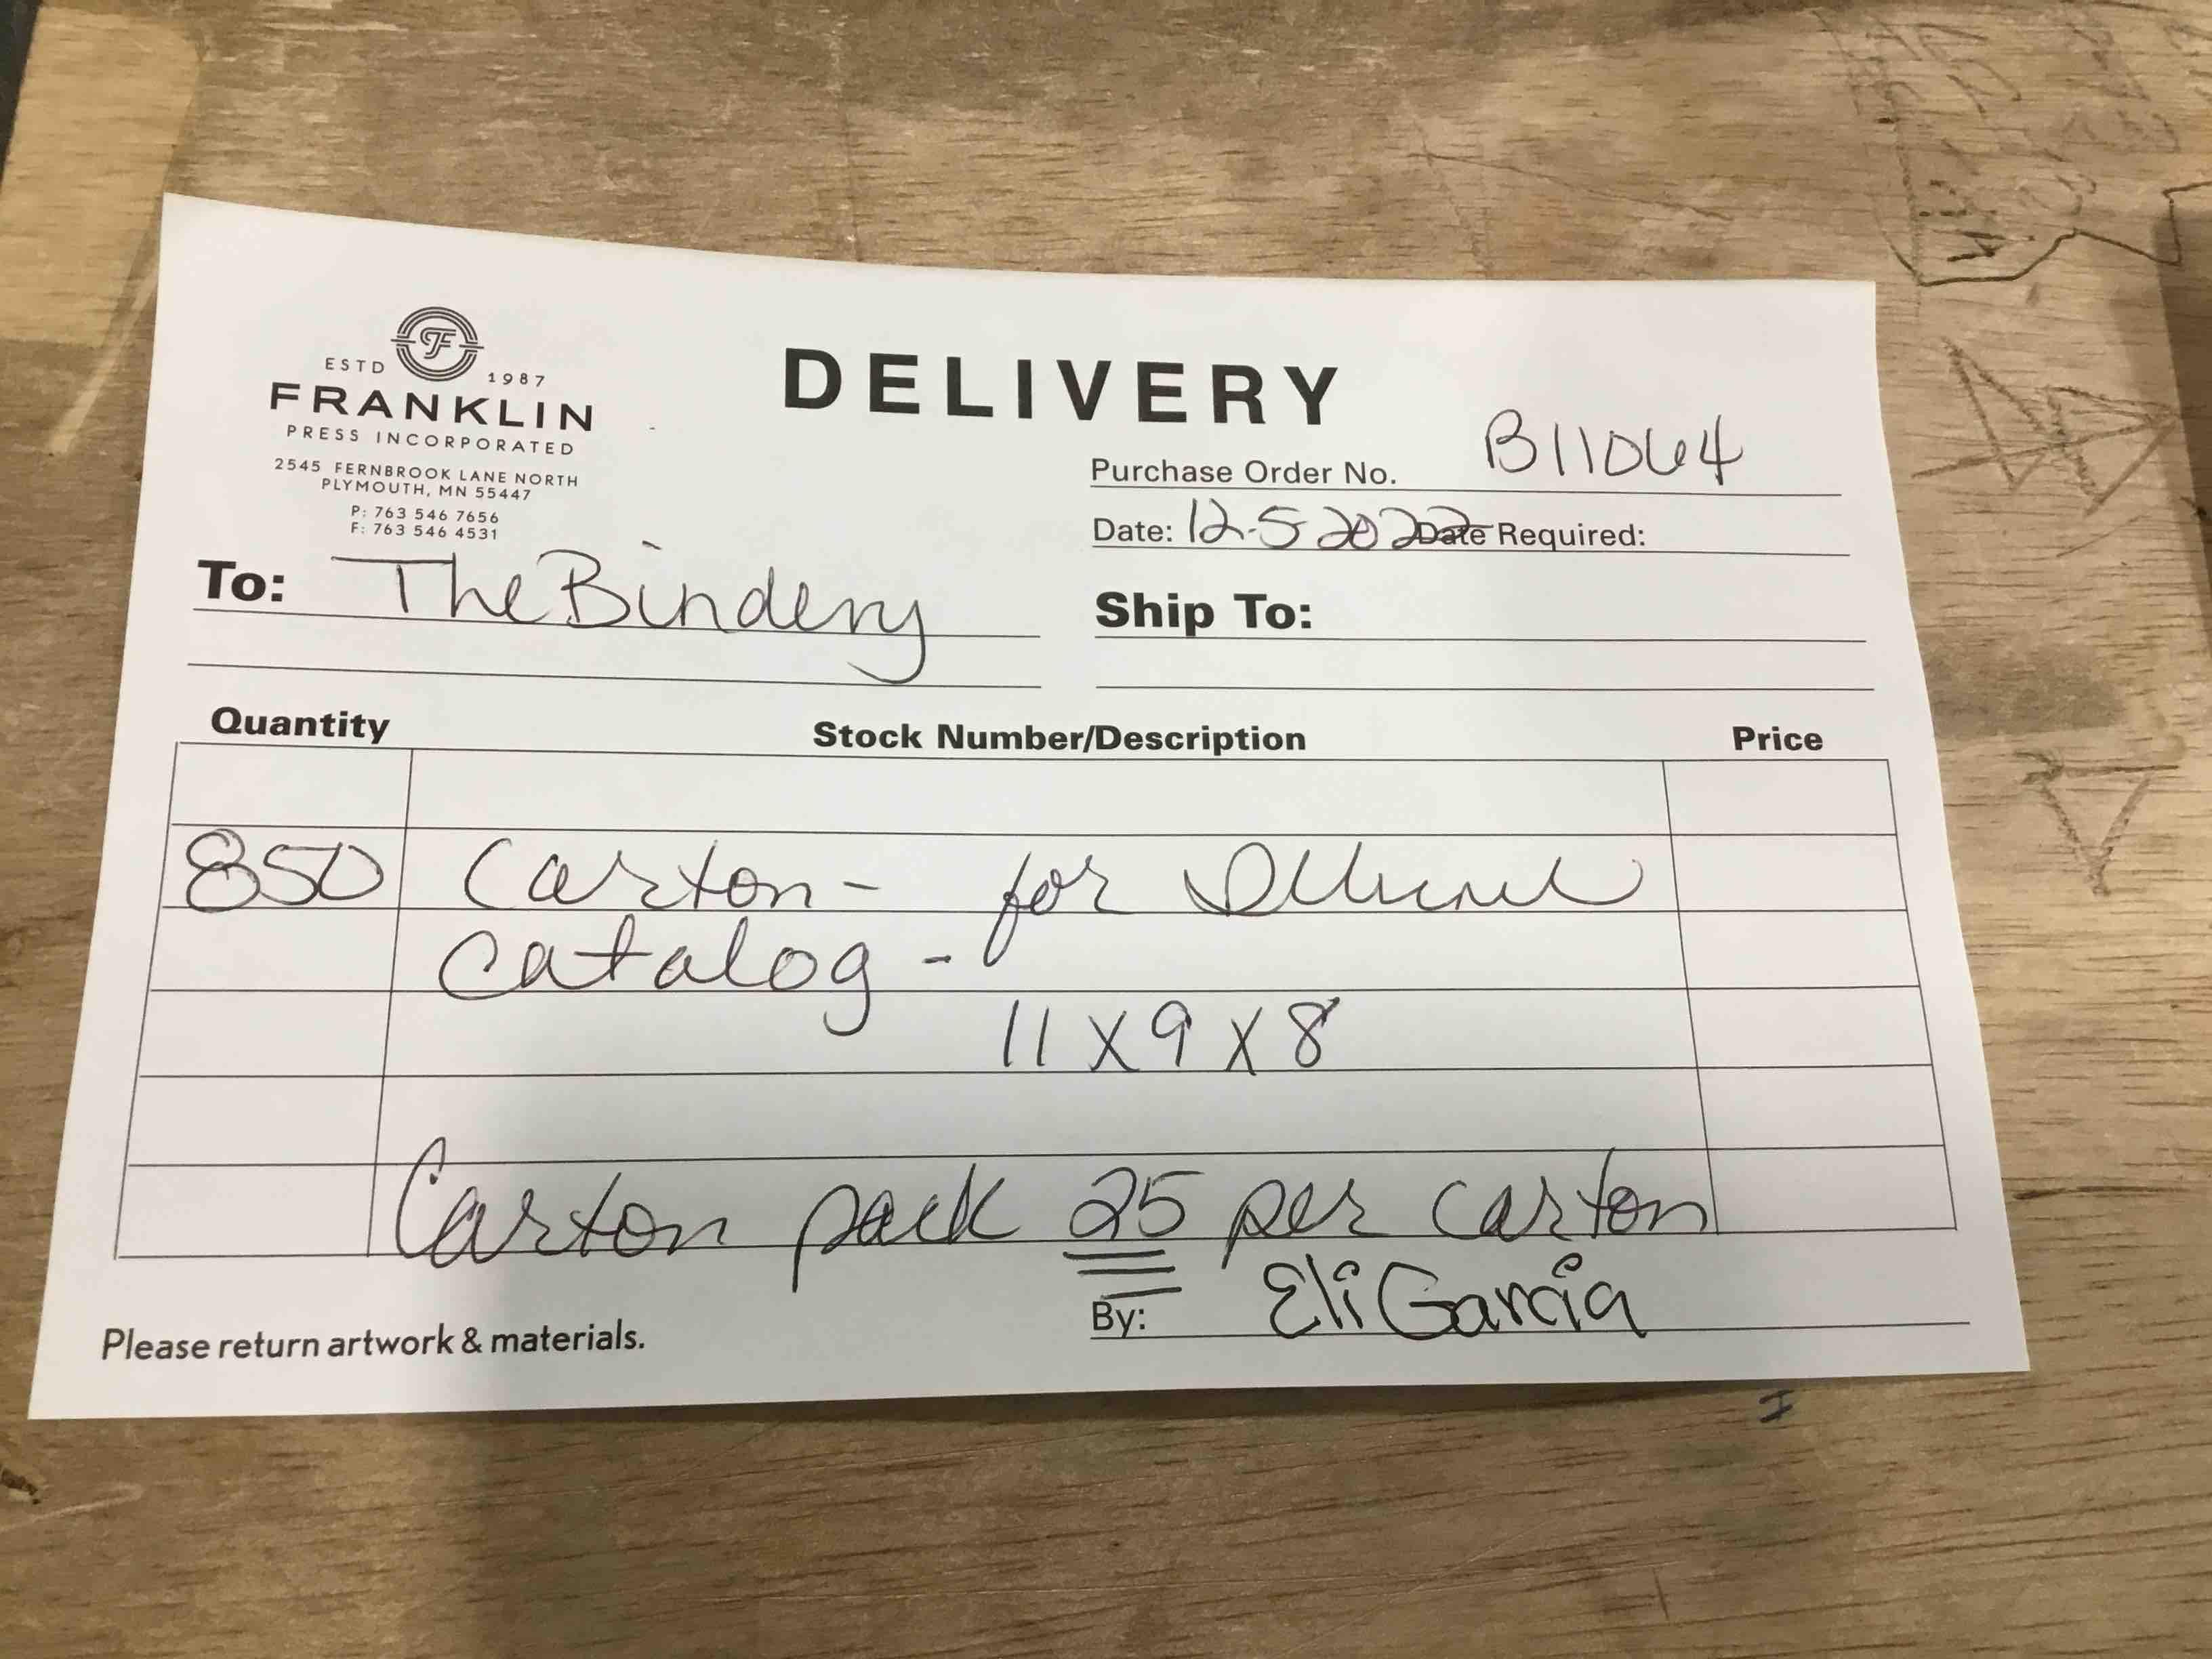 ESTD 1987
FRANKLIN
PRESS INCORPORATED
2545 FERNBROOK LANE NORTH
PLYMOUTH, MN 55447
P: 763 546 7656
F: 763 546 4531
DELIVERY
Purchase Order No. B11064
Date: 12-5-2022 Date Required:
To: The Bindery
Ship To:
Quantity Stock Number/Description Price
850 Carton - for
catalog -
11 X 9 X 8
Carton pack 25 per carton
By: Eli Garcia
Please return artwork & materials.